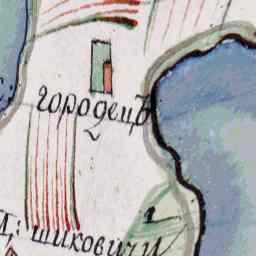 городецъ
Д: шиковичи